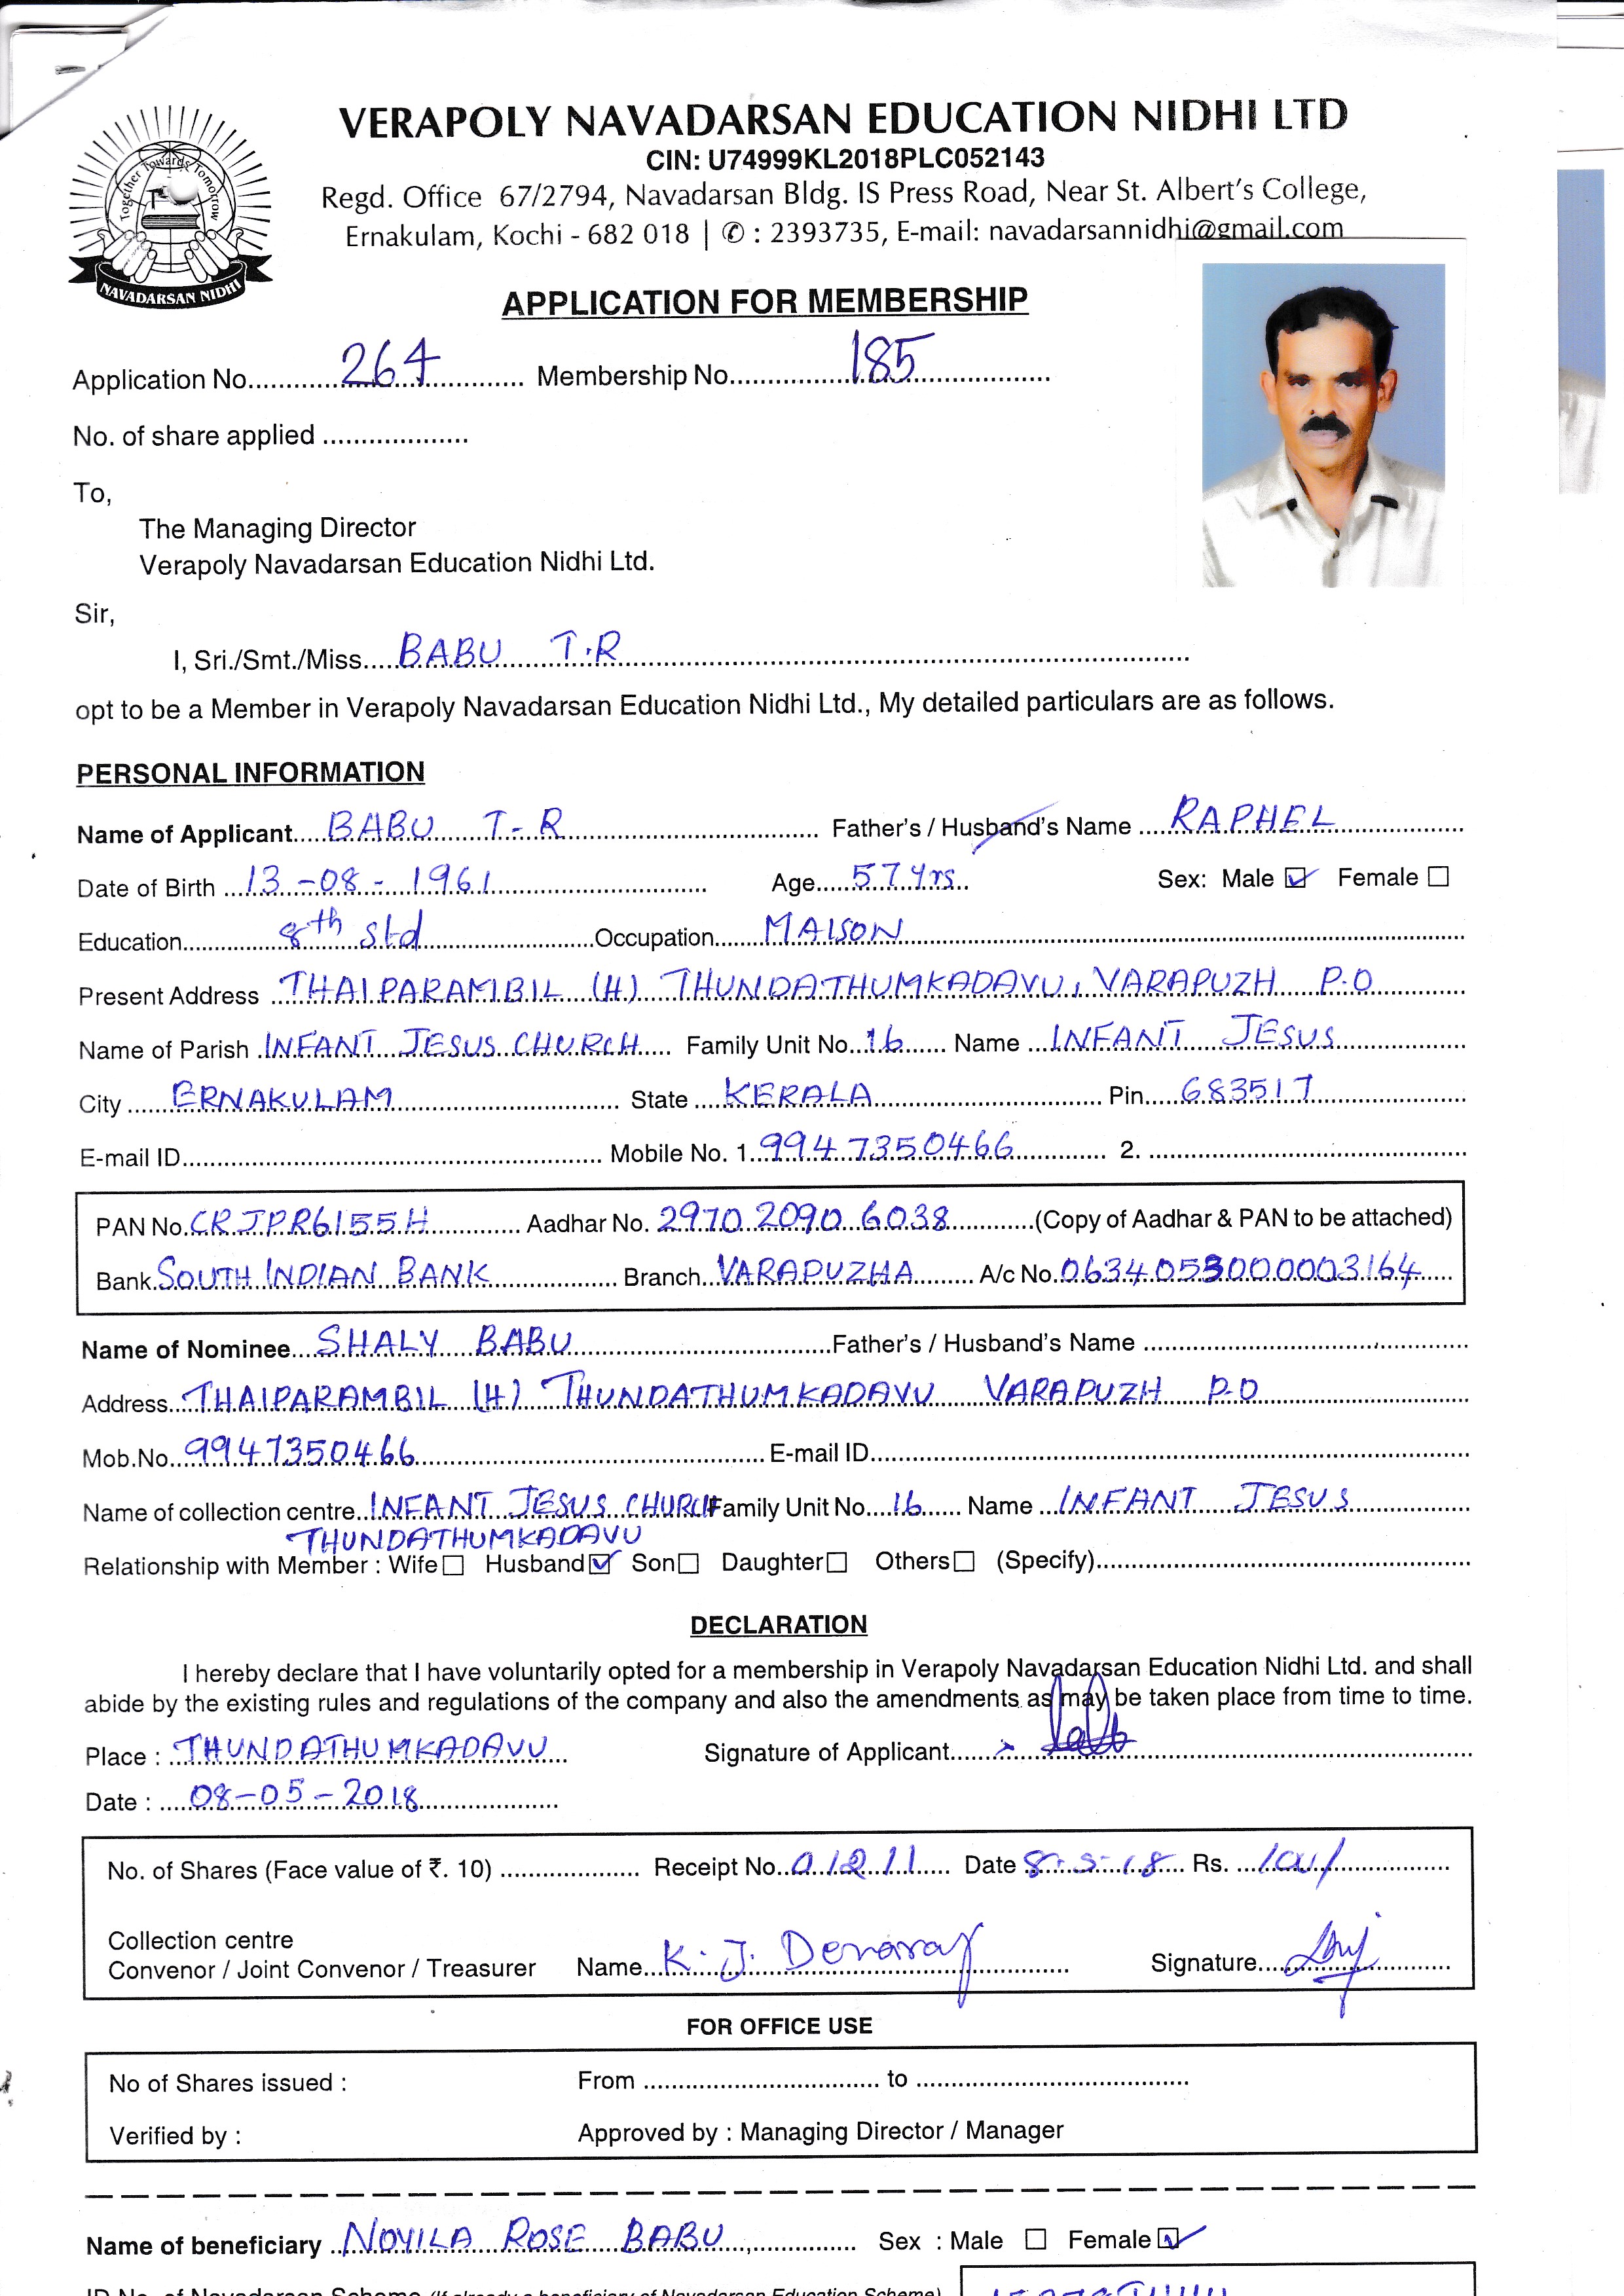 VERAPOLY NAVADARSAN EDUCATION NIDHI LTD
CIN: U74999KL2018PLC052143
Regd. Office 67/2794, Navadarsan Bldg. IS Press Road, Near St. Albert's College,
Ernakulam, Kochi - 682 018 | ✆ : 2393735, E-mail: navadarsannidhi@gmail.com
Together Towards Tomorrow
NAVADARSAN NIDHI
APPLICATION FOR MEMBERSHIP
Application No. 264 Membership No. 185
No. of share applied
To,
The Managing Director
Verapoly Navadarsan Education Nidhi Ltd.
Sir,
I, Sri./Smt./Miss. BABU T.R
opt to be a Member in Verapoly Navadarsan Education Nidhi Ltd., My detailed particulars are as follows.
PERSONAL INFORMATION
Name of Applicant BABU T-R Father's / Husband's Name RAPHEL
Date of Birth 13-08-1961 Age 57 Yrs Sex: Male ☑ Female ☐
Education 8th std Occupation MAISON
Present Address THAIPARAMBIL (H) THUNDATHUMKADAVU, VARAPUZH P.O
Name of Parish INFANT JESUS CHURCH Family Unit No. 16 Name INFANT JESUS
City ERNAKULAM State KERALA Pin 683517
E-mail ID Mobile No. 1. 9947350466 2.
PAN No. CRJPR6155H Aadhar No. 2970 2090 6038 (Copy of Aadhar & PAN to be attached)
Bank SOUTH INDIAN BANK Branch VARAPUZHA A/c No. 0634053000003164
Name of Nominee SHALY BABU Father's / Husband's Name
Address THAIPARAMBIL (H) THUNDATHUMKADAVU VARAPUZH P-O
Mob.No. 9947350466 E-mail ID
Name of collection centre INFANT JESUS CHURCH Family Unit No. 16 Name INFANT JESUS
THUNDATHUMKADAVU
Relationship with Member : Wife ☐ Husband ☑ Son ☐ Daughter ☐ Others ☐ (Specify)
DECLARATION
I hereby declare that I have voluntarily opted for a membership in Verapoly Navadarsan Education Nidhi Ltd. and shall
abide by the existing rules and regulations of the company and also the amendments as may be taken place from time to time.
Place : THUNDATHUMKADAVU Signature of Applicant
Date : 08-05-2018
No. of Shares (Face value of ₹. 10) Receipt No. Date 8-5-18 Rs.
Collection centre
Convenor / Joint Convenor / Treasurer Name K. J. Signature
FOR OFFICE USE
No of Shares issued : From to
Verified by : Approved by : Managing Director / Manager
Name of beneficiary NOYILA ROSE BABU Sex : Male ☐ Female ☑